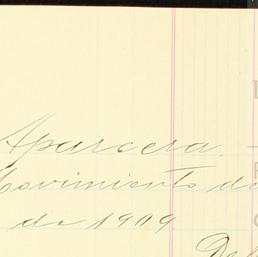 Aparcera.
Movimiento de
de 1909
De